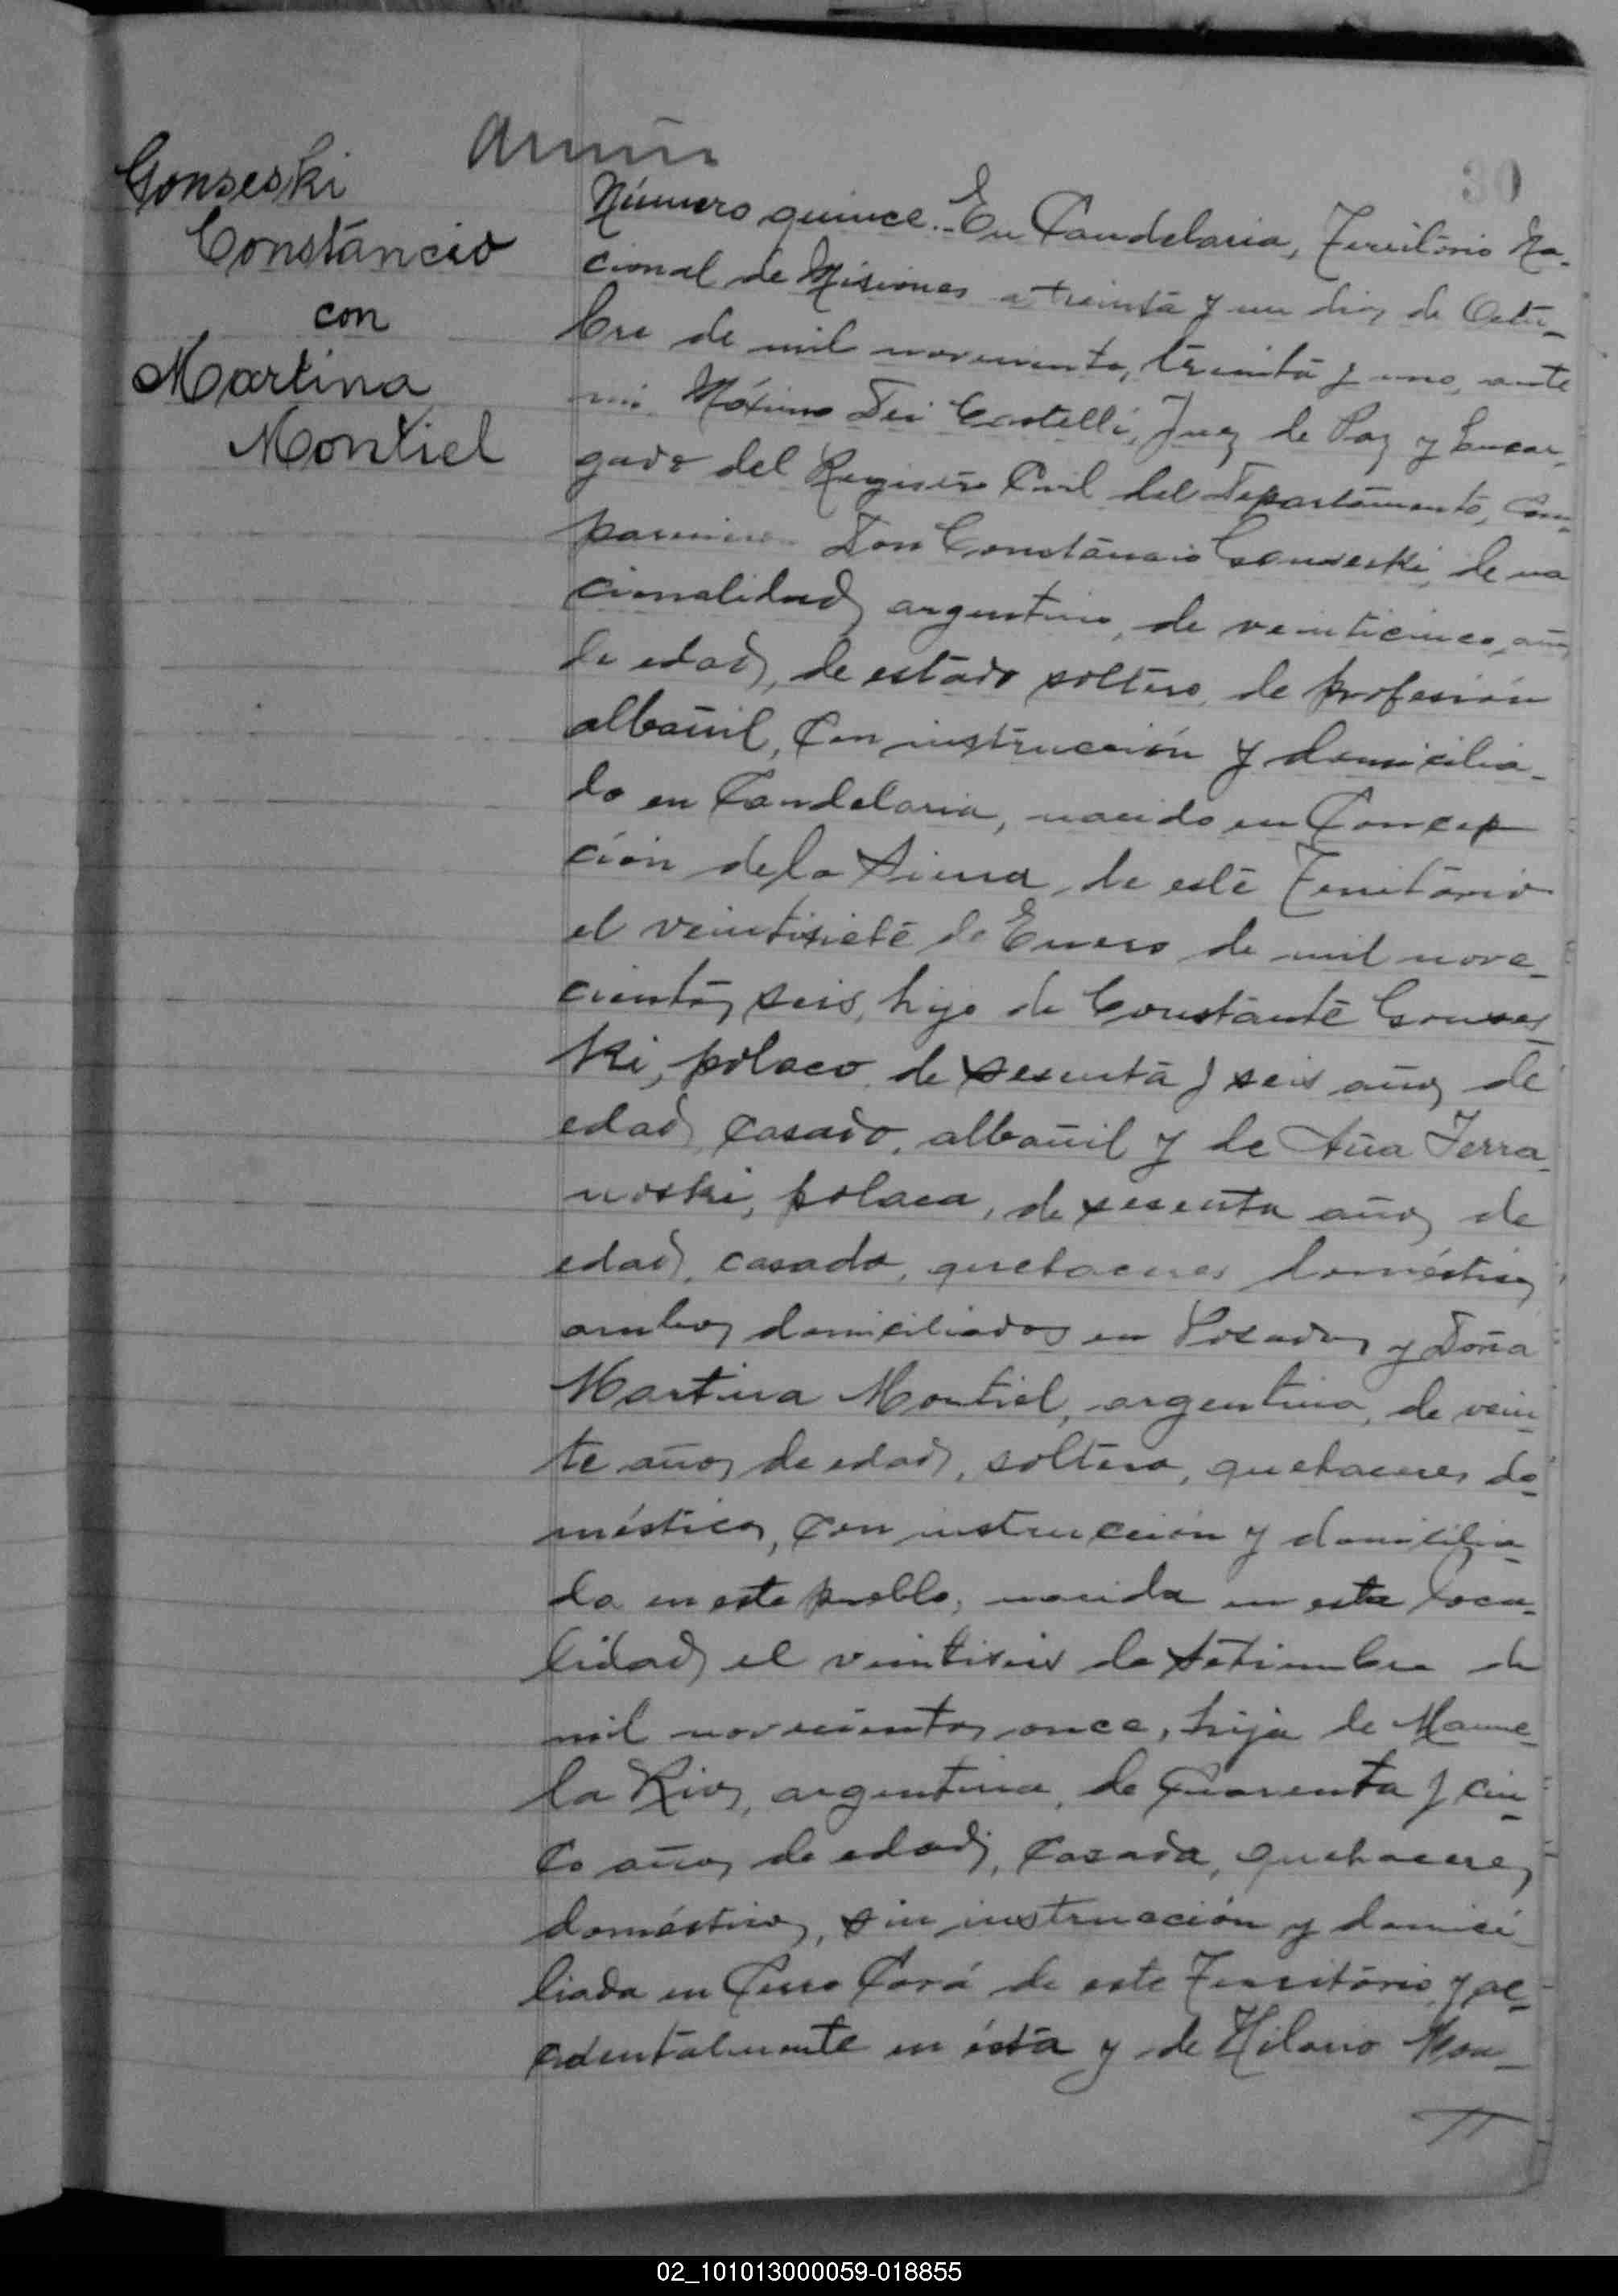 30
Gonseski
Constáncio
con
Martina
Montiel
Número quince.- En Candelaria, Territorio Na-
cional de Misiones a treinta y un dias de Octu-
bre de mil novecientos treinta y uno, ante
mi Máximo Dei Castelli, Juez de Paz y Encar-
gado del Registro Civil del Departamento, com-
parecieron Don Constáncio Gonseski, de na
cionalidad argentino, de veinticinco años
de edad, de estado soltero, de profesión
albañil, con instrucción y domicilia-
do en Candelaria, nacido en Concep
ción de la Sierra, de este Territorio
el veintisiete de Enero de mil nove-
cientos seis, hijo de Constante Gonses
ki, polaco, de sesenta y seis años de
edad, casado, albañil y de Ana Terra-
noski, polaca, de sesenta años de
edad, casada, quehaceres domésticos
ambos domiciliados en Posadas y Doña
Martina Montiel, argentina, de vein-
te años de edad, soltera, quehaceres do-
mésticos, con instrucción y domicilia-
da en este pueblo, nacida en esta loca-
lidad el veintiseis de Setiembre de
mil novecientos once, hija de Manue-
la Rios, argentina, de cuarenta y cin-
co años de edad, casada, quehaceres
domésticos, sin instrucción y domici
liada en Cerro Corá de este Territorio y ac-
cidentalmente en ésta y de Hilario Mon-
02_101013000059-018855